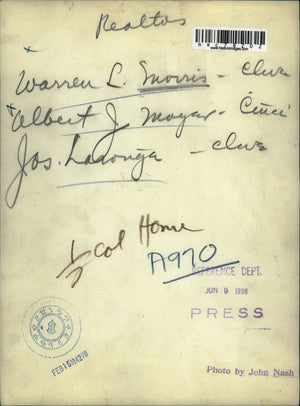 Realtors
Warren L. Morris - Cleve
Albert J Mayer - Cinci
Jos. Laronge - Cleve
½ Col Home
A970
REFERENCE DEPT.
JUN 9 1938
PRESS
FEB 15 1942
Photo by John Nash